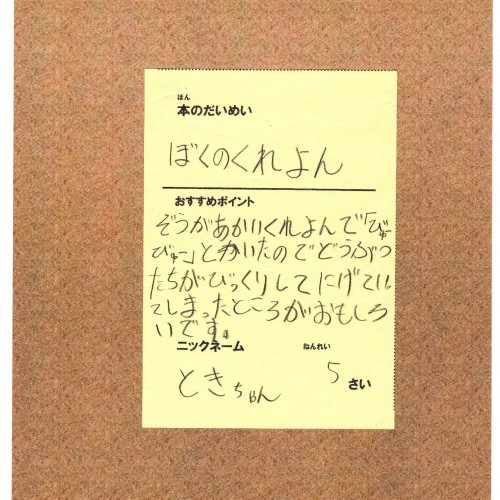 ほん
本のだいめい
ぼくのくれよん
おすすめポイント
ぞうがあかいくれよんで「びゅー
びゅー」とかいたのでどうぶつ
たちがびっくりしてにげてい
てしまったところがおもしろ
いです。
ニックネーム ねんれい
ときちゃん 5さい